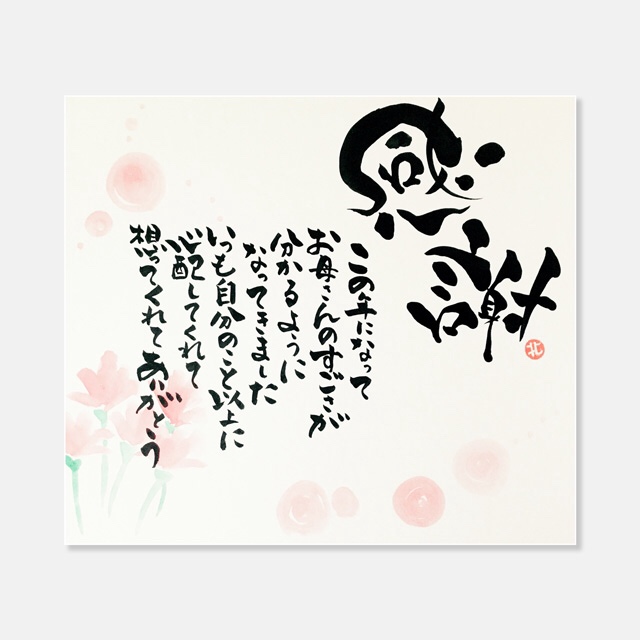 感謝
この年になって
お母さんのすごさが
分かるように
なってきました
いつも自分のこと以上に
心配してくれて
想ってくれてありがとう